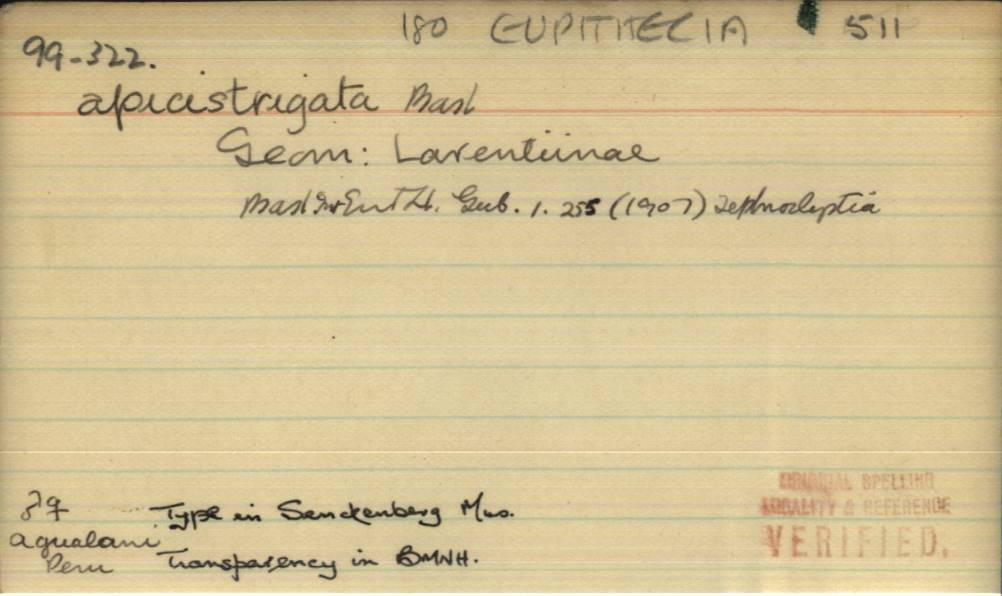 180 EUPITHECIA 511
99-322.
apicistrigata Bast
Geom: Larentiinae
Bast Int Ent Zt. Gub. 1. 255 (1907) Tephroclystia
♂♀ Type in Senckenberg Mus.
agualani
Peru Transparency in BMNH.
ORIGINAL SPELLING
LOCALITY & REFERENCE
VERIFIED.